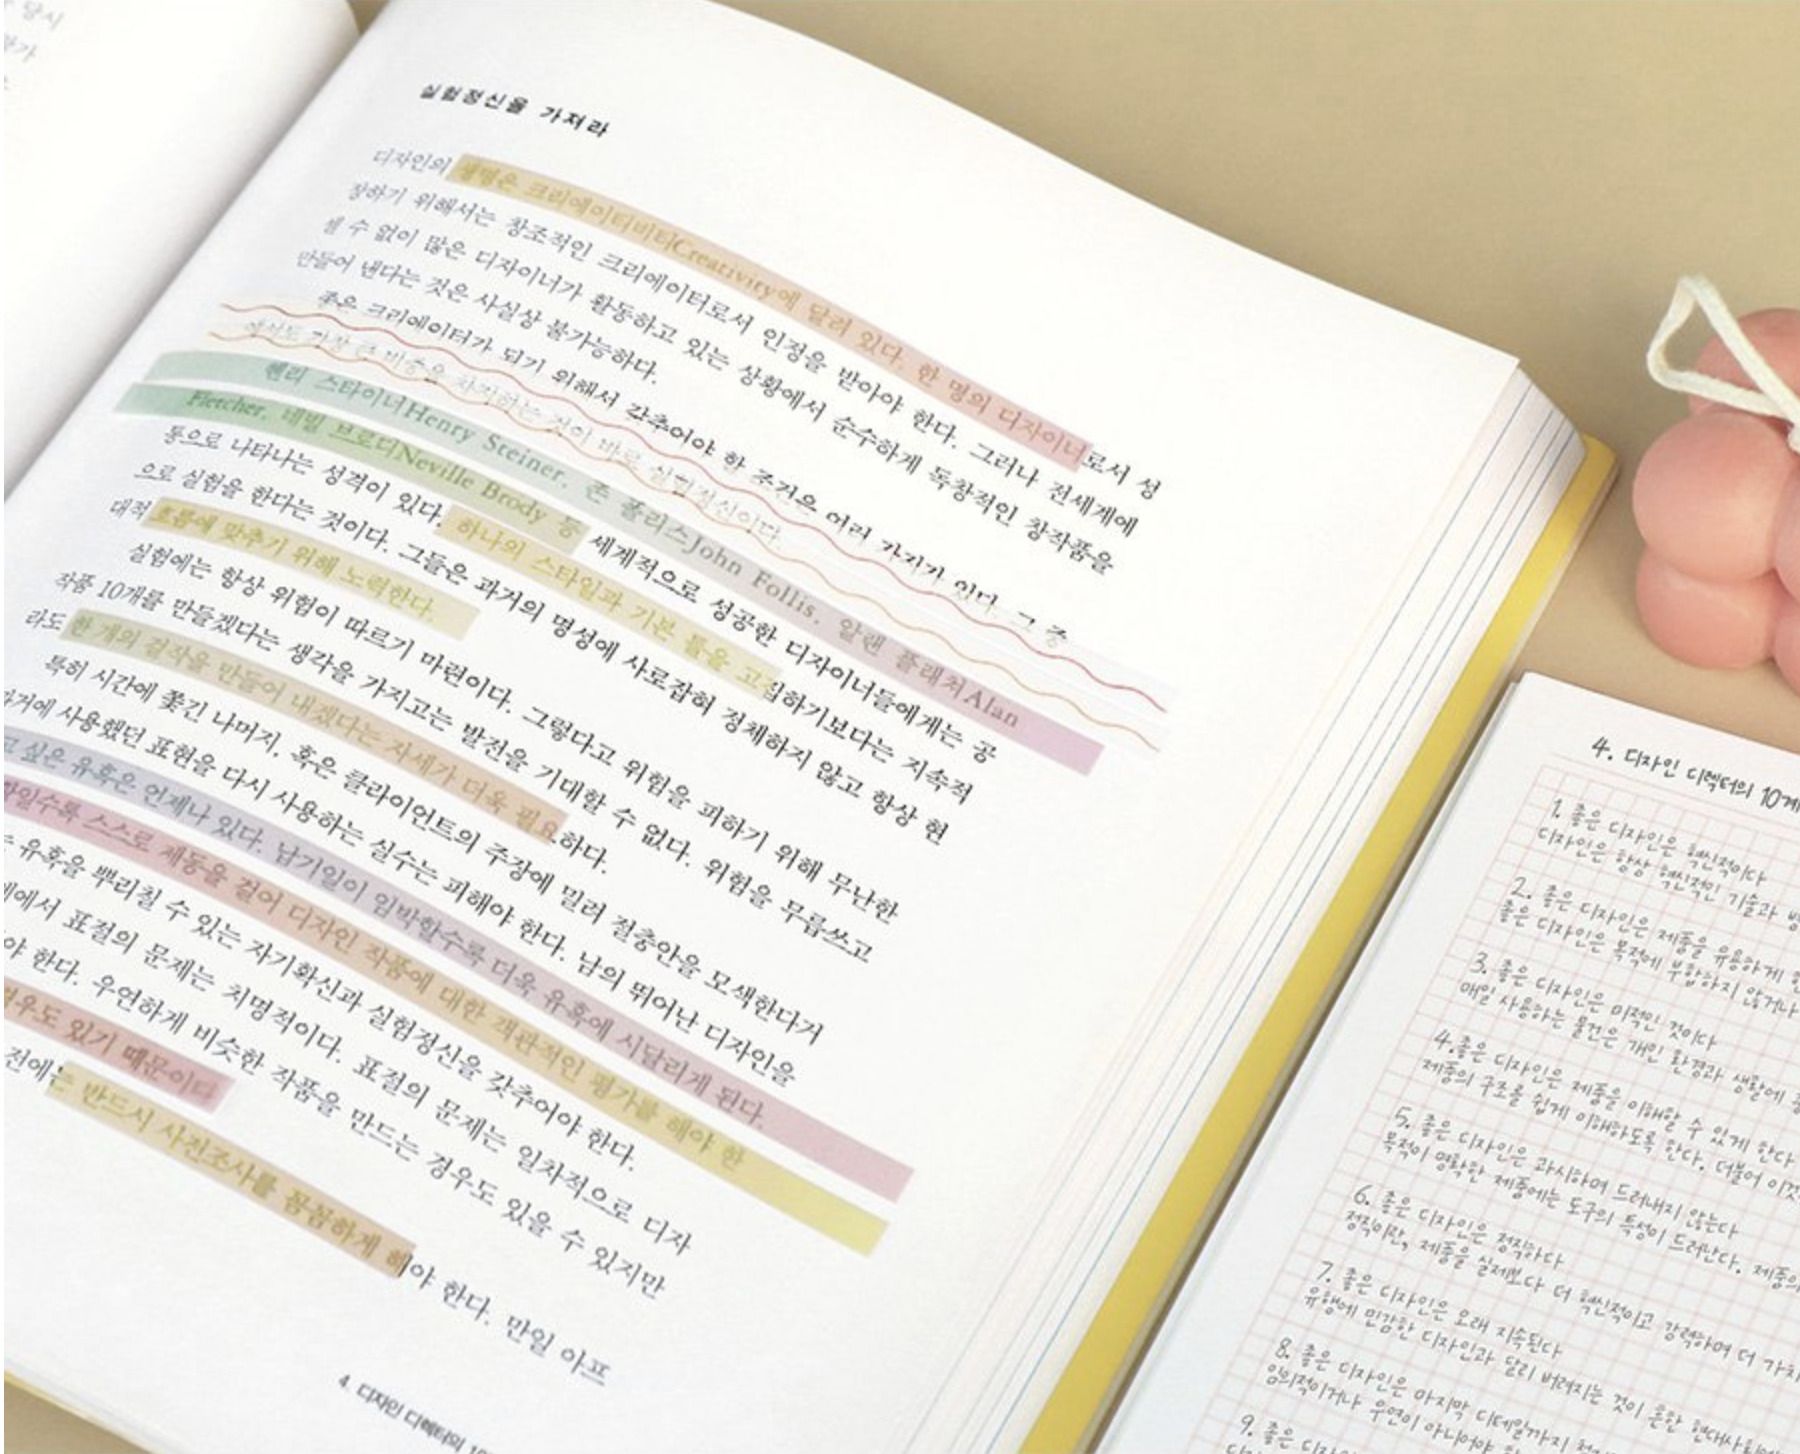 당시
실험정신을 가져라
디자인의 생명은 크리에이티비티Creativity에 달려 있다. 한 명의 디자이너로서 성
장하기 위해서는 창조적인 크리에이터로서 인정을 받아야 한다. 그러나 전세계에
셀 수 없이 많은 디자이너가 활동하고 있는 상황에서 순수하게 독창적인 창작품을
만들어 낸다는 것은 사실상 불가능하다.
좋은 크리에이터가 되기 위해서 갖추어야 할 조건은 여러 가지가 있다. 그 중
에서도 가장 큰 비중을 차지하는 것이 바로 실험정신이다.
헨리 스타이너Henry Steiner, 존 폴리스John Follis, 알랜 플래처Alan
Fletcher, 네빌 브로디Neville Brody 등 세계적으로 성공한 디자이너들에게는 공
통으로 나타나는 성격이 있다. 하나의 스타일과 기본 틀을 고집하기보다는 지속적
으로 실험을 한다는 것이다. 그들은 과거의 명성에 사로잡혀 정체하지 않고 항상 현
대적 흐름에 맞추기 위해 노력한다.
실험에는 항상 위험이 따르기 마련이다. 그렇다고 위험을 피하기 위해 무난한
작품 10개를 만들겠다는 생각을 가지고는 발전을 기대할 수 없다. 위험을 무릅쓰고
라도 한 개의 걸작을 만들어 내겠다는 자세가 더욱 필요하다.
특히 시간에 쫓긴 나머지, 혹은 클라이언트의 주장에 밀려 절충안을 모색한다거
과거에 사용했던 표현을 다시 사용하는 실수는 피해야 한다. 남의 뛰어난 디자인을
고 싶은 유혹은 언제나 있다. 납기일이 임박할수록 더욱 유혹에 시달리게 된다.
일수록 스스로 제동을 걸어 디자인 작품에 대한 객관적인 평가를 해야 한
유혹을 뿌리칠 수 있는 자기확신과 실험정신을 갖추어야 한다.
에서 표절의 문제는 치명적이다. 표절의 문제는 일차적으로 디자
야 한다. 우연하게 비슷한 작품을 만드는 경우도 있을 수 있지만
경우도 있기 때문이다
전에는 반드시 사전조사를 꼼꼼하게 해야 한다. 만일 아프
4. 디자인 디렉터의
4. 디자인 디렉터의 10계
1. 좋은 디자인은 혁신적이다
디자인은 항상 혁신적인 기술과
2. 좋은 디자인은 제품을 유용하게
좋은 디자인은 목적에 부합하지 않거나
3. 좋은 디자인은 미적인 것이다
매일 사용하는 물건은 개인 환경과 생활에
4. 좋은 디자인은 제품을 이해할 수 있게 한다
제품의 구조를 쉽게 이해하도록 한다. 더불어
5. 좋은 디자인은 과시하며 드러내지 않는다
목적이 명확한 제품에는 도구의 특성이 드러난다. 제품의
6. 좋은 디자인은 정직하다
정직이란, 제품을 실제보다 더 혁신적이고 강력하며 더 가치
7. 좋은 디자인은 오래 지속된다
유행에 민감한 디자인과 달리 버려지는 것이 흔한 현대사회에
8. 좋은 디자인은 마지막 디테일까지
임의적이거나 우연이 아니어야
9. 좋은 디자인